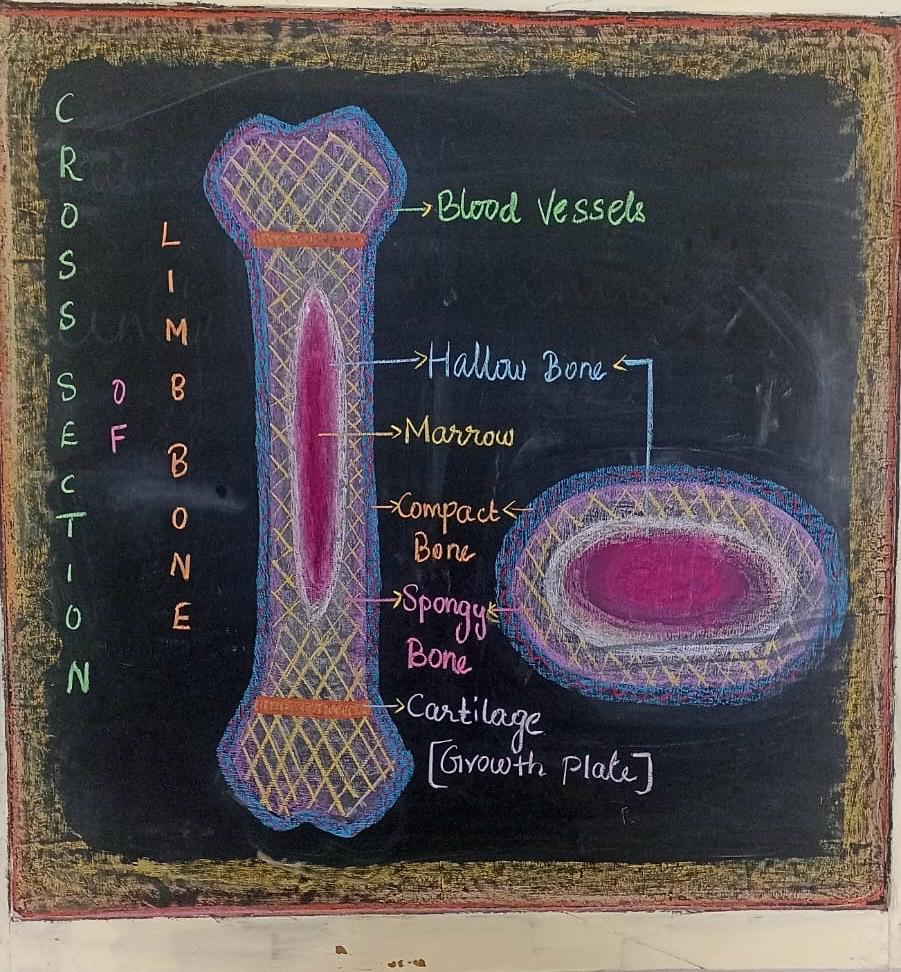 CROSS SECTION
OF
LIMB BONE
Blood Vessels
Hallow Bone
Marrow
Compact
Bone
Spongy
Bone
Cartilage
[Growth Plate]